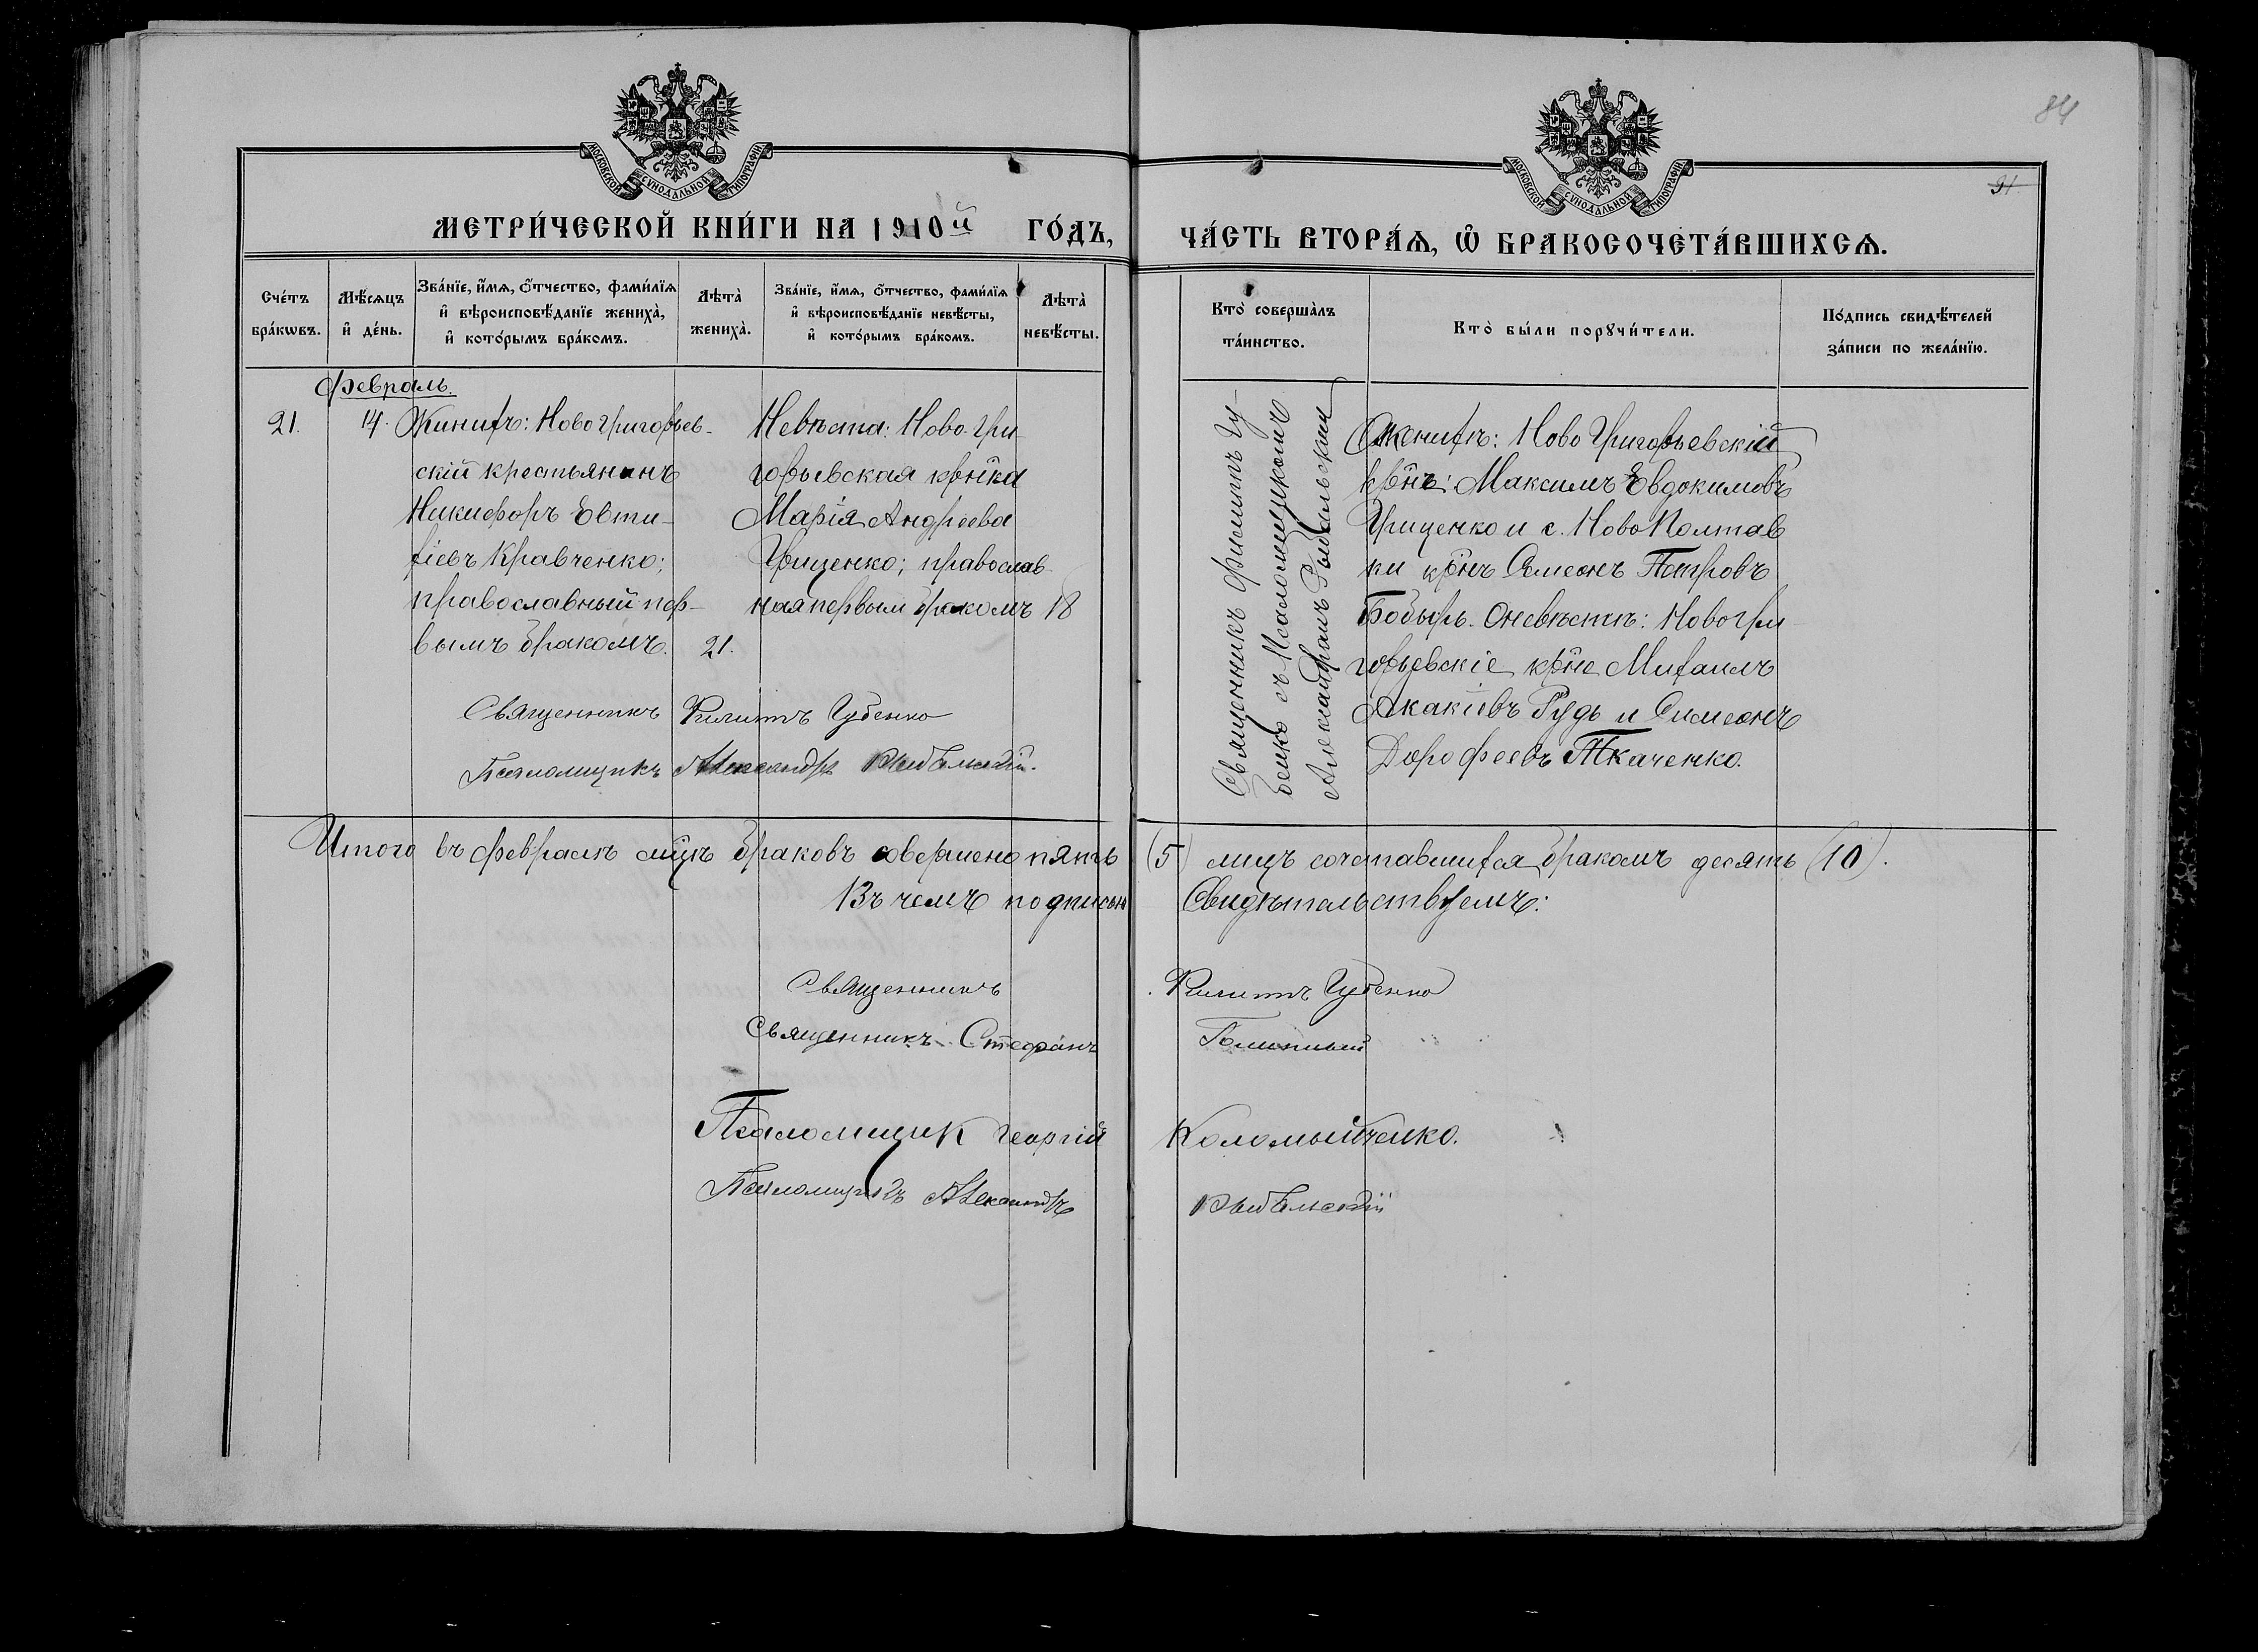 84
91
МОСКОВСКОЙ СѴНОДАЛЬНОЙ ТИПОГРАФІИ
МОСКОВСКОЙ СѴНОДАЛЬНОЙ ТИПОГРАФІИ
МЕТРИ́ЧЕСКОЙ КНИ́ГИ НА 1910й ГО́ДЪ,
ЧА́СТЬ ВТОРА́Ѧ, Ѡ҆ БРАКОСОЧЕТА́ВШИХСѦ.
Сче́тъ
бра́кωвъ.
Мѣ́сѧцъ
и҆ де́нь.
Зва́нїе, и҆́мѧ, ѻ҆́тчество, фами́лїѧ
и҆ вѣроисповѣ́данїе жениха̀,
и҆ кото́рымъ бра́комъ.
Лѣта̀
жениха̀.
Зва́нїе, и҆́мѧ, ѻ҆́тчество, фами́лїѧ
и҆ вѣроисповѣ́данїе невѣ́сты,
и҆ кото́рымъ бра́комъ.
Лѣта̀
невѣ́сты.
Кто̀ соверша́лъ
та́инство.
Кто̀ бы́ли порꙋчи́тели.
По́дпись свидѣ́телей
за́писи по жела́нїю.
Февраль.
21.
14.
Жинихъ: Ново Григорьев-
скій крестьянинъ
Никифоръ Евти-
хіевъ Кравченко;
православный пер-
вымъ бракомъ.
21.
Невѣста: Ново-Гри-
горьевская кр-нка
Марія Андреева
Гриценко; православ-
ная первым бракомъ
18
Священникъ Филиппъ Гу-
бенко съ Псаломщикомъ
Александромъ Рыбальскимъ
О женихѣ: Ново Григорьевскій
кр-нъ: Максимъ Евдокимовъ
Гриценко и с. Ново Полтав
ки кр-нъ Симеонъ Петровъ
Бобырь. О невѣстѣ: Новогри-
горьевскіе кр-не Михаилъ
Акакіевъ Рудь и Симеонъ
Дорофеевъ Ткаченко.
Священникъ Филиппъ Губенко
Псаломщикъ Александръ Рыбальскій.
Итого въ февралѣ м-цѣ браковъ совершено пять (5) лицъ сочетавшихся бракомъ десять (10).
Въ чемъ подписью Свидѣтельствуемъ:
Священникъ Филиппъ Губенко
Священникъ Стефанъ
Псаломщик Георгій Коломыйченко.
Псаломщикъ Александръ Рыбальскій